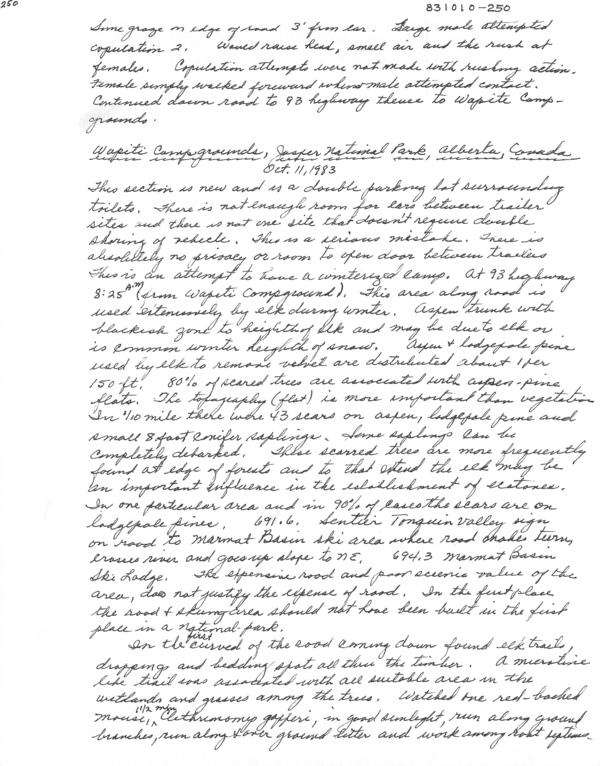 250
831010-250
Some graze on edge of road 3' from car. Large male attempted
copulation 2. Would raise head, smell air and the rush at
females. Copulation attempts were not made with rushing action.
Female simply walked foreward when male attempted contact.
Continued down road to 93 highway thence to Wapite Camp-
grounds.
Wapiti Campgrounds, Jasper National Park, Alberta, Canada
Oct. 11, 1983
This section is new and is a double parking lot surrounding
toilets. There is not enough room for cars between trailer
sites and there is not one site that doesn't require double
sharing of vehecle. This is a serious mistake. There is
absolutely no privacy or room to open door between trailers
This is an attempt to have a winterized camp. At 93 highway
8:25 A.M (from Wapiti Campground). This area along road is
used extensively by elk during winter. Aspen trunk with
blackish zone to heighth of elk and may be due to elk or
is common winter heighth of snow. Aspen + lodgepole pine
used by elk to remove velvet are distributed about 1 per
150 ft. 80% of scared trees are associated with aspen-pine
flats. The topography (flat) is more important than vegetation
In 4/10 mile there were 43 scars on aspen, lodgepole pine and
small 8 foot conifer saplings. Some saplings can be
completely debarked. These scarred trees are more frequently
found at edge of forests and to that extend the elk may be
an important influence in the establishment of ecotones.
In one particular area and in 90% of cases the scars are on
lodgepole pines. 691.6. Sentier Tonquin Valley sign
on road to Marmat Basin ski area where road makes turn,
crosses river and goes up slope to NE. 694.3 Marmat Basin
Ski Lodge. The expensive road and poor scienic value of the
area, does not justify the expense of road. In the first place
the road + skiing area should not have been built in the first
place in a national-park.
In the first curved of the road coming down found elk trails,
droppings and bedding spots all thru the timber. A microtine
like trail was associated with all suitable area in the
wetlands and grasses among the trees. Watched one red-backed
mouse, 1 1/2 min, Clethrionomys gapperi, in good sunlight, run along ground
branches, run along + over ground litter and work among root